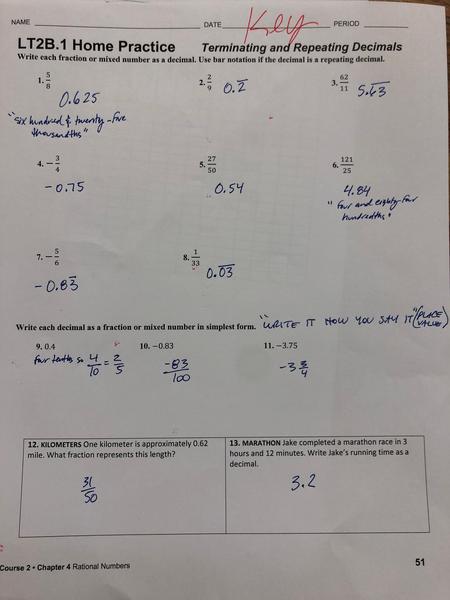 NAME DATE Key PERIOD
LT2B.1 Home Practice Terminating and Repeating Decimals
Write each fraction or mixed number as a decimal. Use bar notation if the decimal is a repeating decimal.
1. 5/8 2. 2/9 0.2̅ 3. 62/11 5.6̅3̅
0.625
"six hundred & twenty-five
thousandths"
4. -3/4 5. 27/50 6. 121/25
-0.75 0.54 4.84
"four and eighty-four
hundredths"
7. -5/6 8. 1/33
-0.83̅ 0.0̅3̅
Write each decimal as a fraction or mixed number in simplest form. "WRITE IT HOW YOU SAY IT" (PLACE VALUE)
9. 0.4 10. -0.83 11. -3.75
four tenths so 4/10 = 2/5 -83/100 -3 3/4
12. KILOMETERS One kilometer is approximately 0.62
mile. What fraction represents this length?
31/50
13. MARATHON Jake completed a marathon race in 3
hours and 12 minutes. Write Jake's running time as a
decimal.
3.2
Course 2 • Chapter 4 Rational Numbers 51